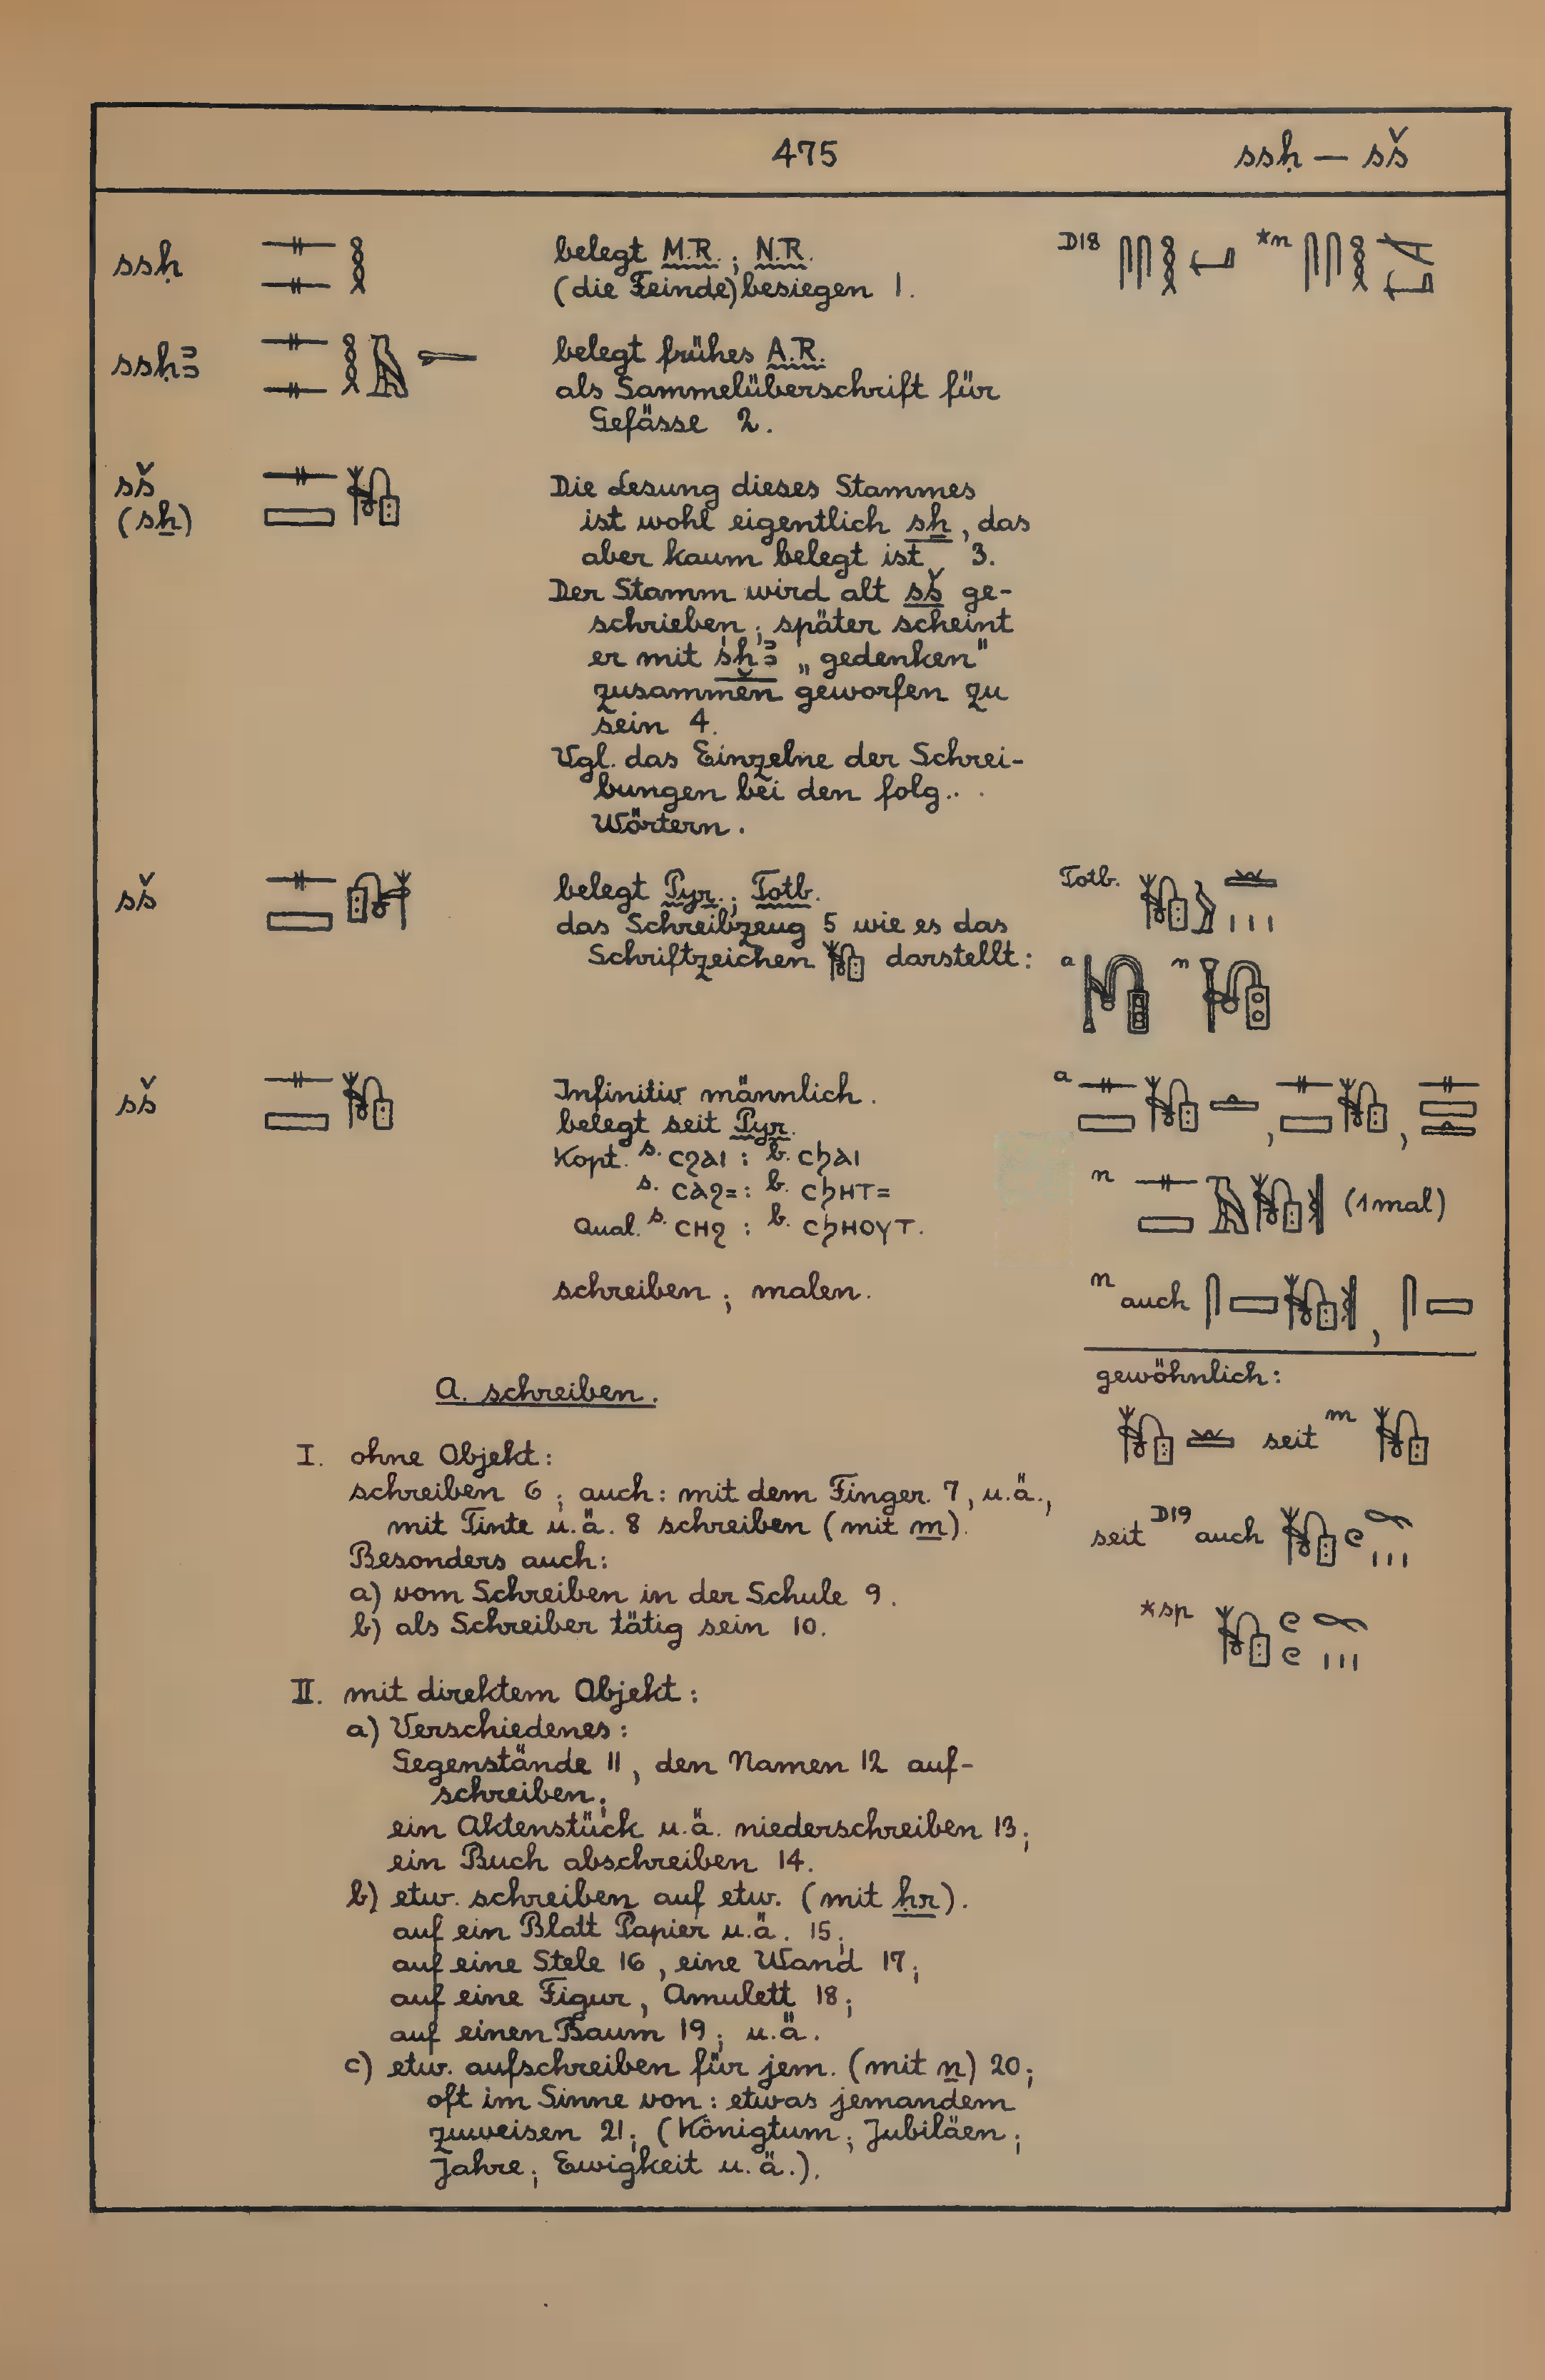 475
ssḥ — sš
ssḥ
belegt M.R.; N.R.
(die Feinde) besiegen 1.
D18
*n
ssḥꜣ
belegt frühes A.R.
als Sammelüberschrift für
Gefässe 2.
sš
(sẖ)
Die Lesung dieses Stammes
ist wohl eigentlich sẖ, das
aber kaum belegt ist 3.
Der Stamm wird alt sš ge-
schrieben; später scheint
er mit sḫꜣ „gedenken"
zusammen geworfen zu
sein 4.
Vgl. das Einzelne der Schrei-
bungen bei den folg.
Wörtern.
sš
belegt Pyr.; Totb.
das Schreibzeug 5 wie es das
Schriftzeichen 𓏞 darstellt:
Totb.
a
n
sš
Infinitiv männlich.
belegt seit Pyr.
Kopt. s. ⲥϩⲁⲓ : b. ⲥϧⲁⲓ
s. ⲥⲁϩ= : b. ⲥϧⲏⲧ=
Qual. s. ⲥⲏϩ : b. ⲥϧⲏⲟⲩⲧ.
schreiben; malen.
a
n
(1 mal)
n auch
gewöhnlich:
seit m
seit D19 auch
*sp
A. schreiben.
I. ohne Objekt:
schreiben 6; auch: mit dem Finger 7, u.ä.,
mit Tinte u.ä. 8 schreiben (mit m).
Besonders auch:
a) vom Schreiben in der Schule 9.
b) als Schreiber tätig sein 10.
II. mit direktem Objekt:
a) Verschiedenes:
Gegenstände 11, den Namen 12 auf-
schreiben;
ein Aktenstück u.ä. niederschreiben 13;
ein Buch abschreiben 14.
b) etw. schreiben auf etw. (mit ḥr).
auf ein Blatt Papier u.ä. 15;
auf eine Stele 16, eine Wand 17;
auf eine Figur, Amulett 18;
auf einen Baum 19; u.ä.
c) etw. aufschreiben für jem. (mit n) 20;
oft im Sinne von: etwas jemandem
zuweisen 21; (Königtum; Jubiläen;
Jahre; Ewigkeit u.ä.).